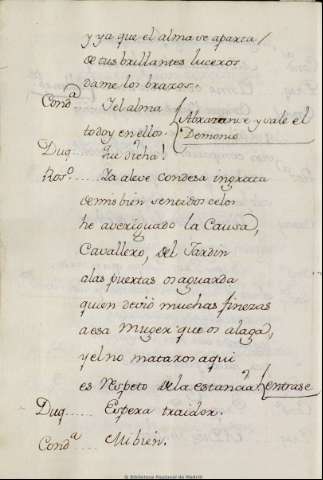 y ya que el alma se aparta /
de tus brillantes luceros
dame los brazos.
Condª Y el alma (Abrazanse y vase el
te doy en ellos. Demonio
Duq..... Que dicha!
Rosº..... Ya aleve condesa ingrata
de mis bien sentidos celos
he averiguado la Causa,
Cavallero, del Jardin
a las puertas os aguarda
quien devió muchas finezas
a esa Muger que os alaga,
y el no mataros aqui
es respeto de la estancia. (entrase
Duq..... Espera traidor.
Condª..... Mi bien.
© Biblioteca Nacional de Madrid